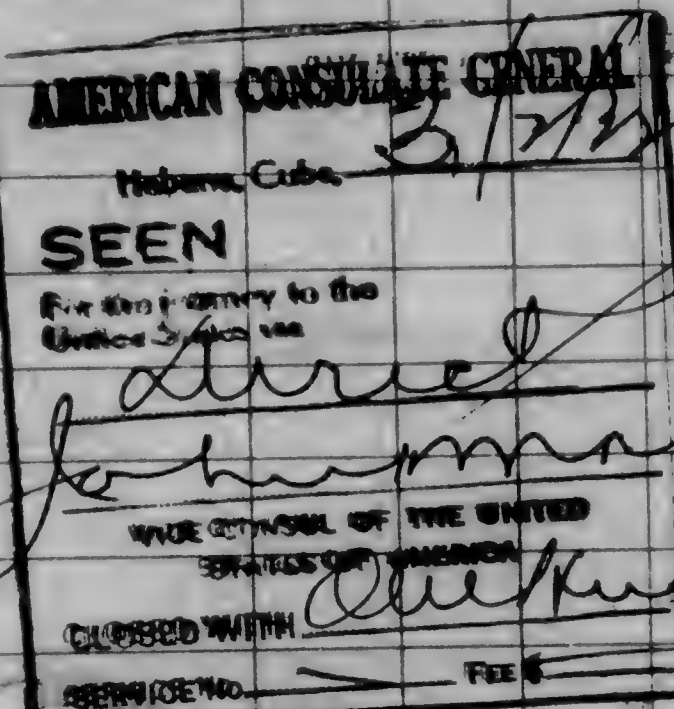 AMERICAN CONSULATE GENERAL
Habana, Cuba,
SEEN
For the journey to the
United States via
direct
VICE CONSUL OF THE UNITED
STATES OF AMERICA
CLOSED WITH
SERVICE NO. FEE $